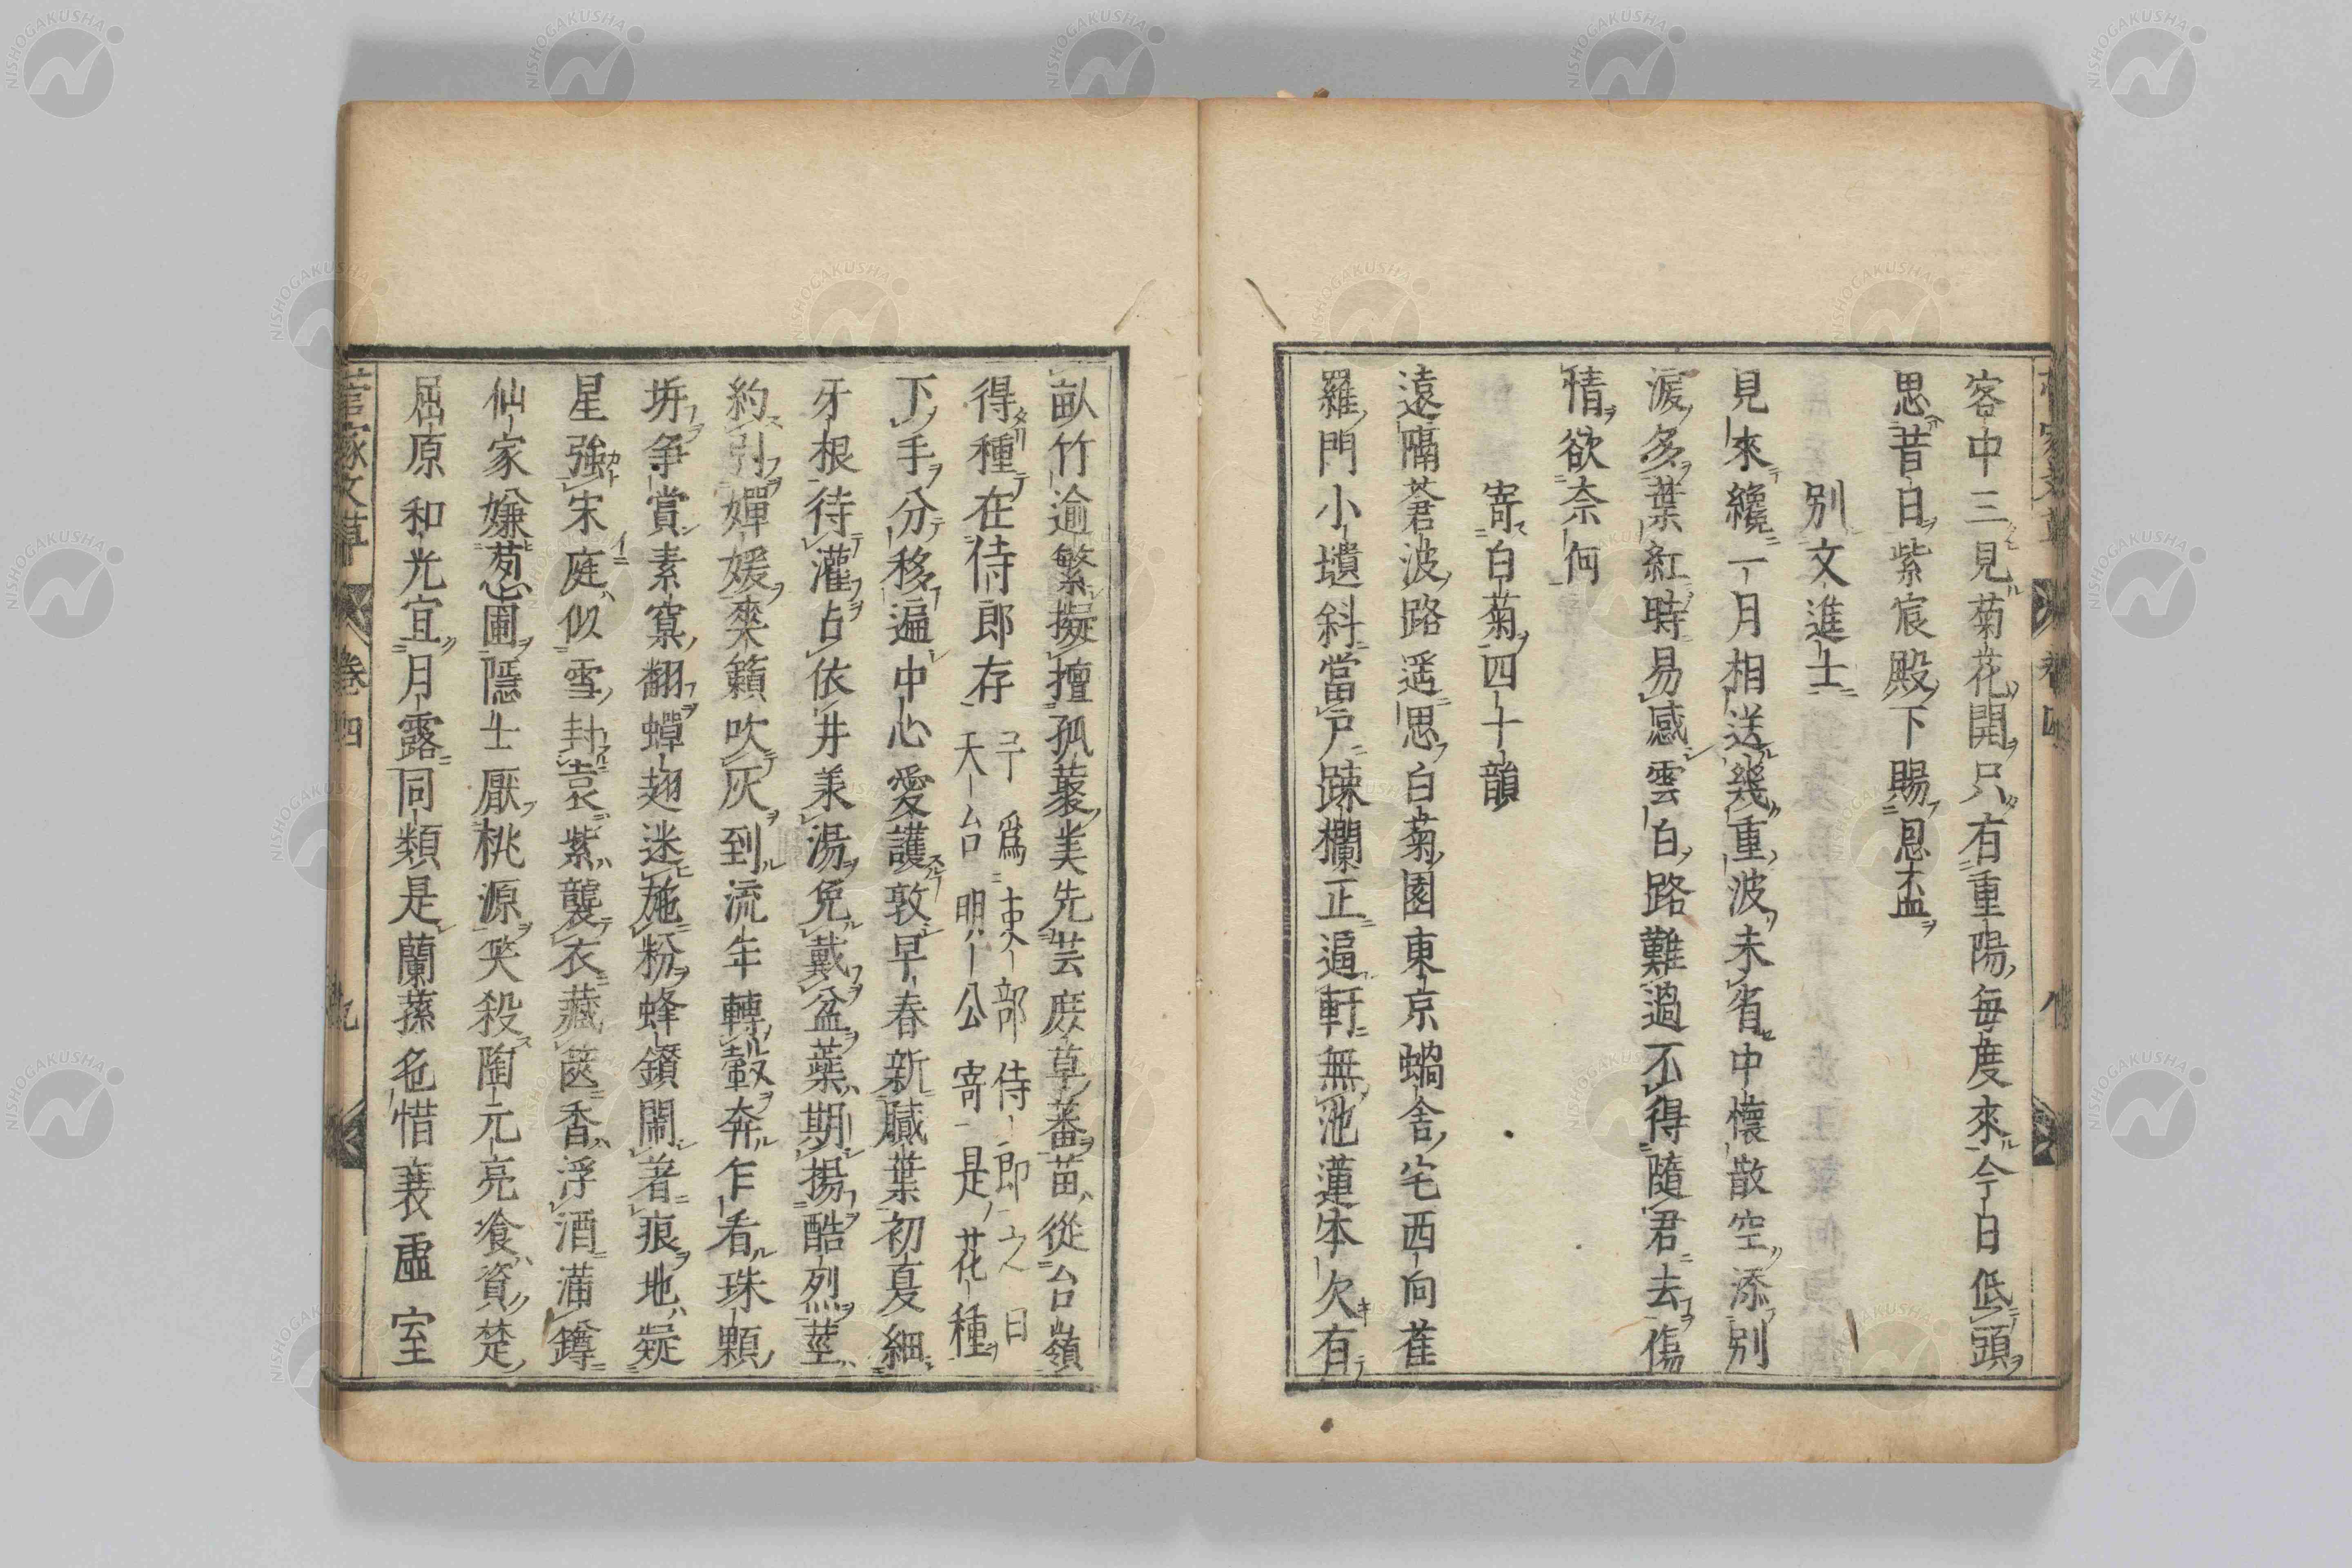 客中三見菊花開只有重陽每度來今日低頭
思昔日紫宸殿下賜恩盃
別文進士
見來纔一月相送幾重波未省中懷散空添別
淚多葉紅時易感雲白路難過不得隨君去傷
情欲奈何
寄白菊四十韻
遠隔蒼波路遥思白菊園東京蝸舍宅西向雀
羅門小壝斜當戶踈欄正逼軒無池蓮本欠有
畝竹逾繁擬擅孤藂美先芸庶草蕃苗從台嶺
得種在侍郎存
予爲吏部侍郎之日
天台明公寄是花種
下手分移遍中心愛護敦早春新膩葉初夏細
牙根待灌占依井羕湯免戴盆蘂期揚酷烈莖
約引嬋媛爽籟吹灰到流年轉轂奔乍看珠顆
坼爭賞素窠翻蟬翅迷施粉蜂鑚鬧著痕地疑
星強宋庭似雪封袁紫襲衣藏篋香浮酒滿鐏
仙家嫌葱圃隱士厭桃源笑殺陶元亮飡資楚
屈原和光宜月露同類是蘭蓀名惜蓑虛室
菅家文草 卷四 九
NISHOGAKUSHA